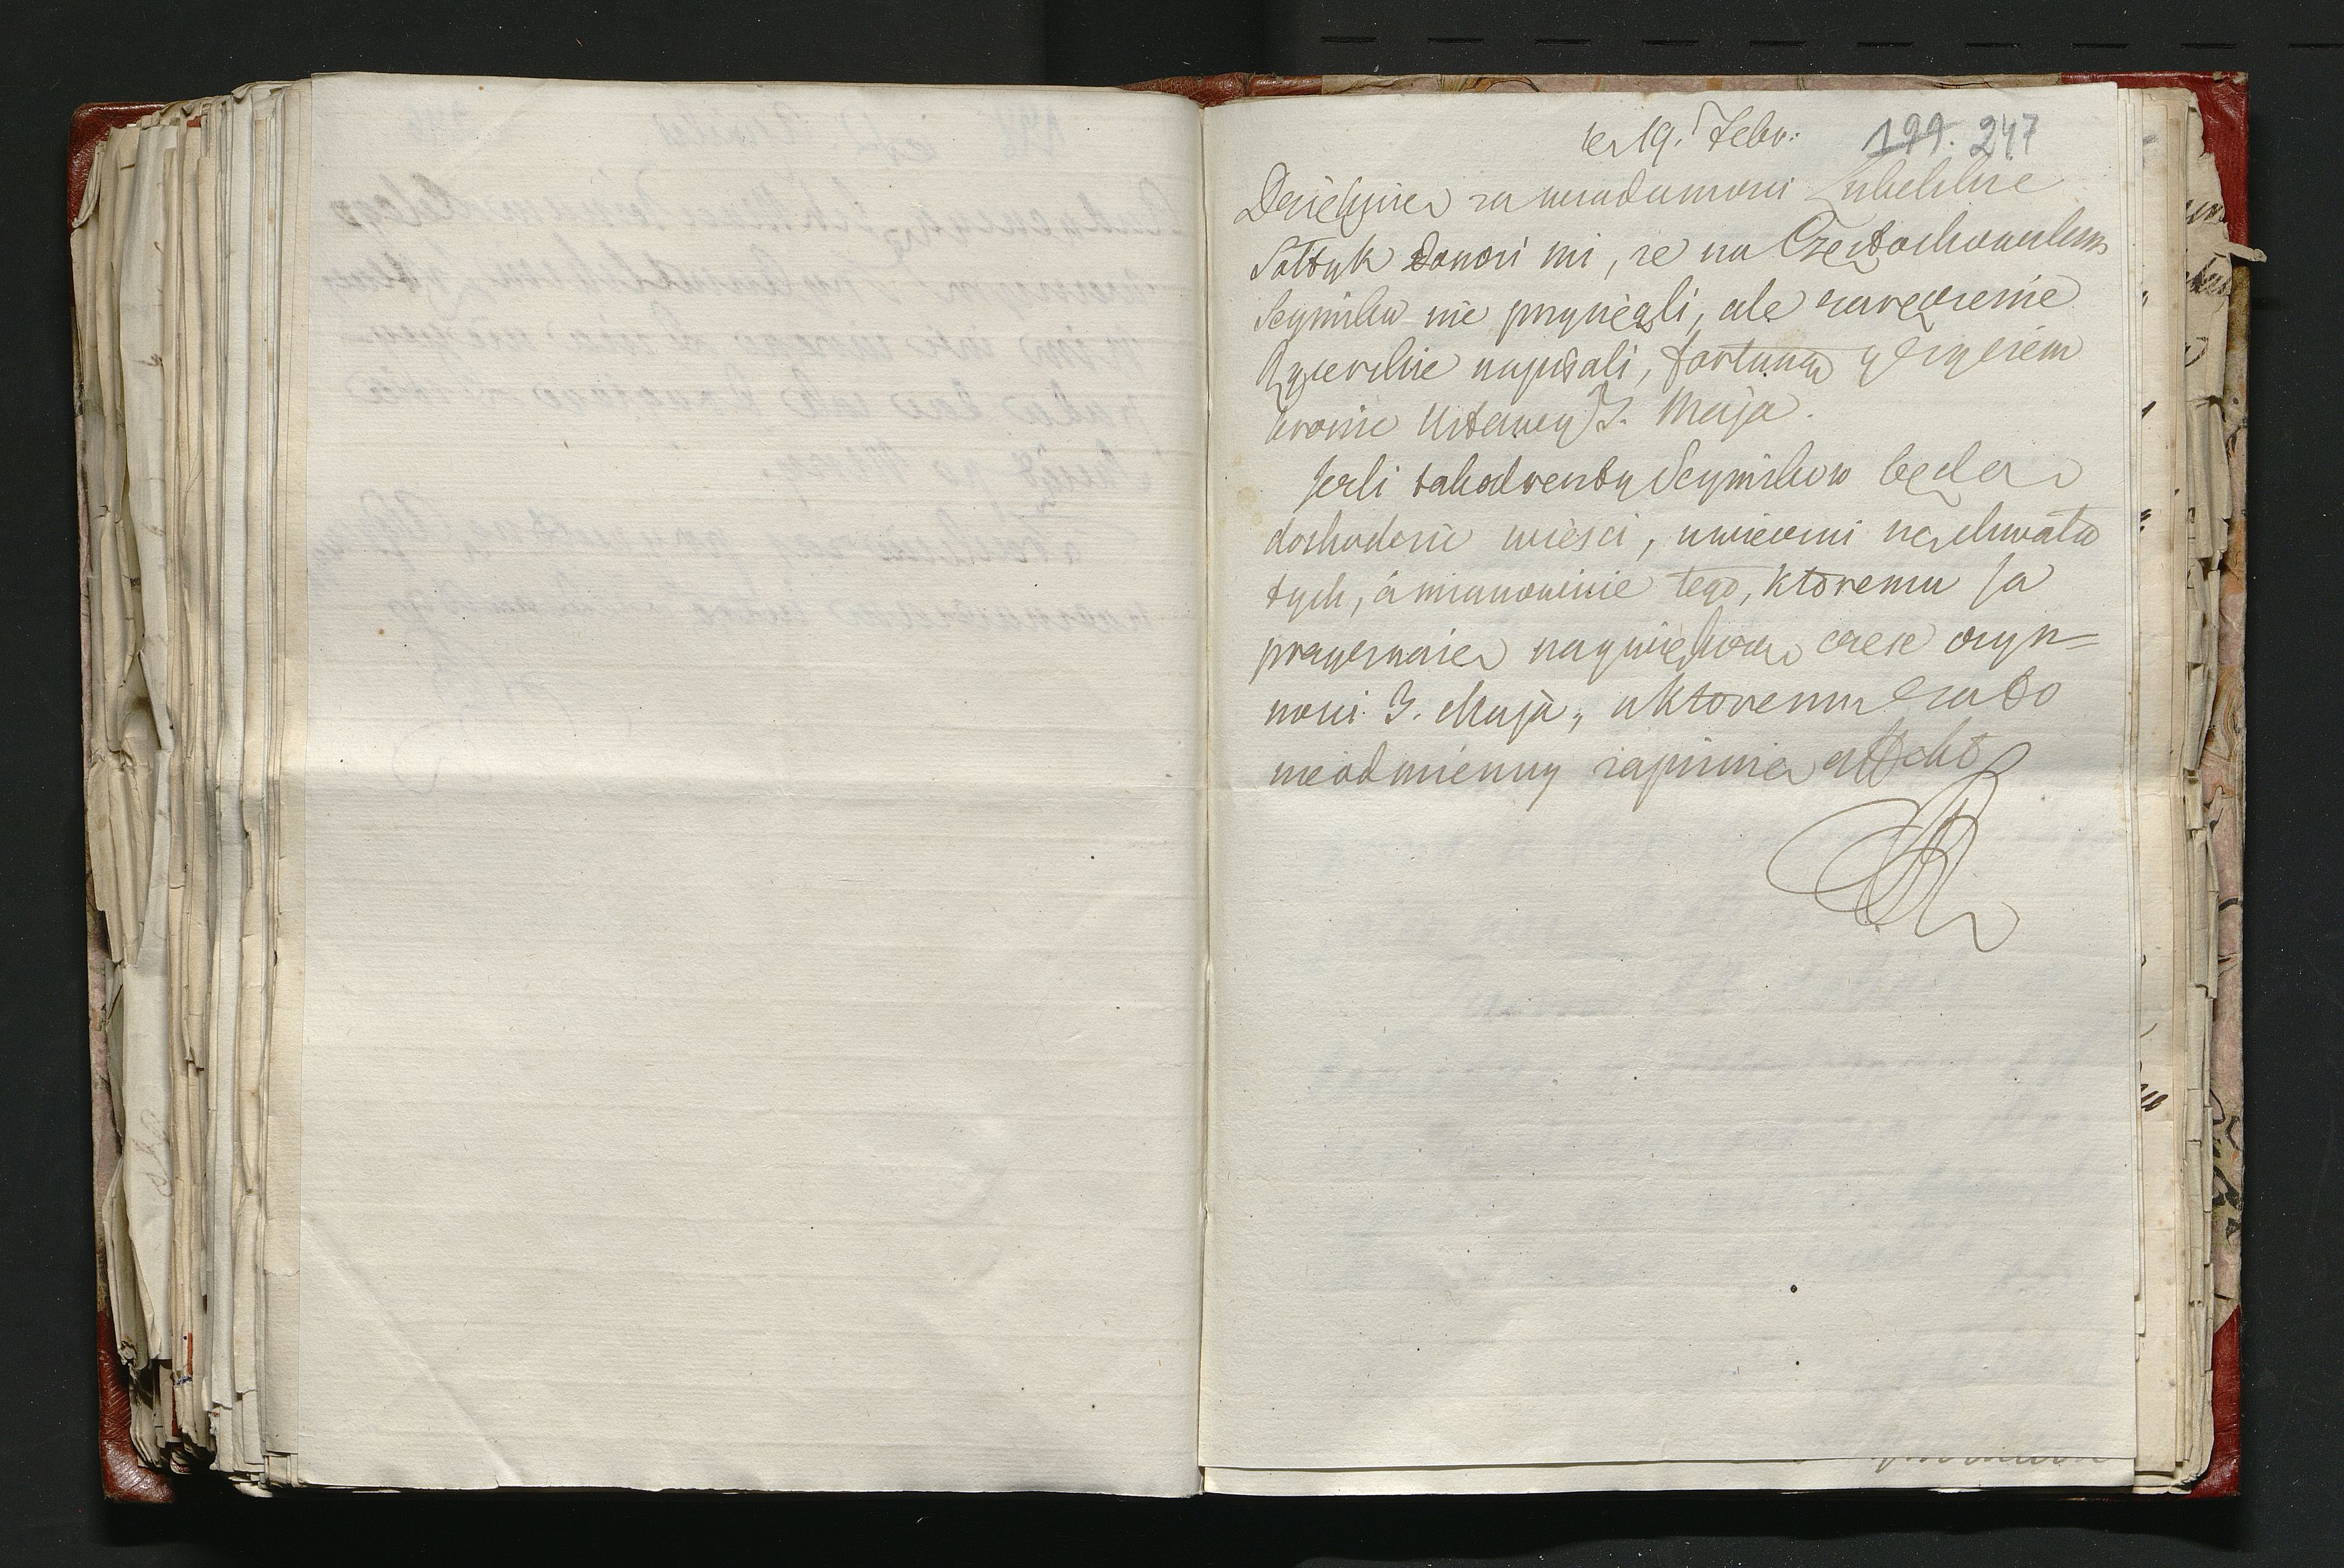 19. Febr: 199. 247
Dziękuiea za wiadomosci Lubelskie
Sołtyk donosi mi, ze na Częstochowskim
Seymiku nie przysięgli, ale zaręczenie
Rycerskie napisali, fortuną y życiem
bronic Ustawy 3. Maja.
Jezli takowe Seymikow będa
dochodzic wiesci, uwieczni
tych, á mianowicie tego, ktoremu Ja
przyznaiea naywiększa częsc czyn=
nosci 3. Maja, a ktoremu za to
nieodmienny